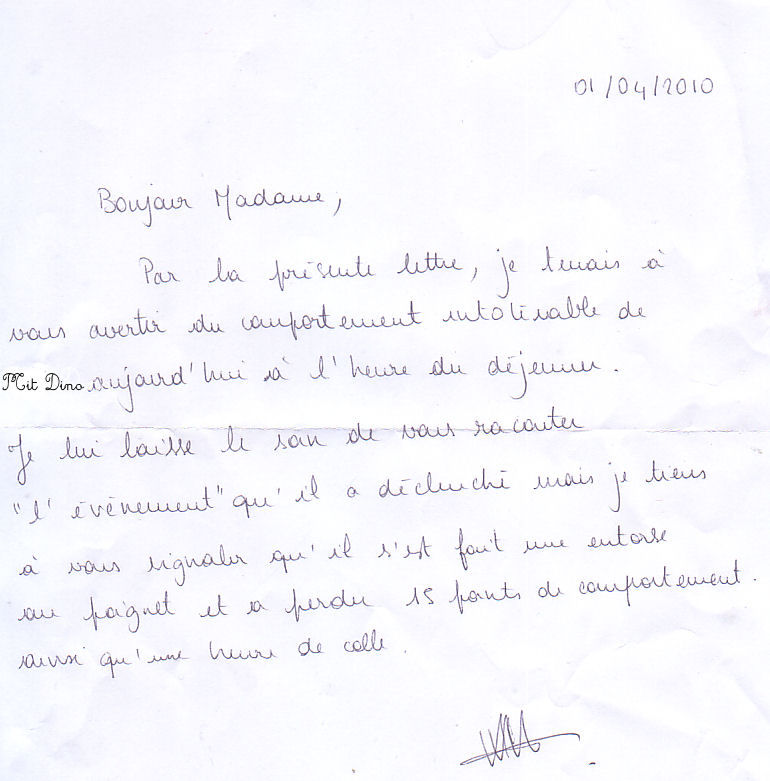 01/04/2010
Bonjour Madame,
Par la présente lettre, je tenais à
vous avertir du comportement intolérable de
P'tit Dino aujourd'hui à l'heure du déjeuner.
Je lui laisse le soin de vous raconter
"l'événement" qu'il a déclenché mais je tiens
à vous signaler qu'il s'est fait une entorse
au poignet et a perdu 15 points de comportement.
ainsi qu'une heure de colle.